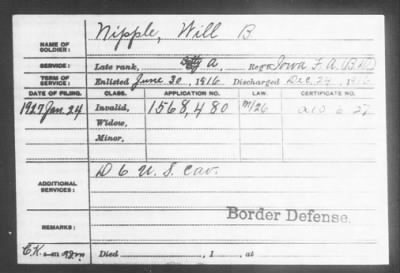 NAME OF SOLDIER: Nipple, Will B
SERVICE: Late rank, Btty A Reg't Iowa F. A.
TERM OF SERVICE: Enlisted June 20, 1916 Discharged Dec. 24, 1916
DATE OF FILING. CLASS. APPLICATION NO. LAW. CERTIFICATE NO.
1927 Jan. 24 Invalid, 1568,480 M/26
Widow,
Minor,
ADDITIONAL SERVICES: D 6 U. S. Cav.
Border Defense.
REMARKS:
C.K. Died , 1 , at